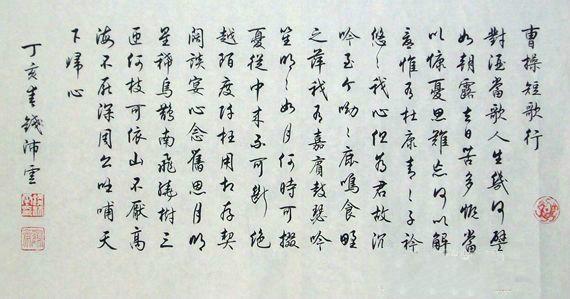 曹操短歌行
對酒當歌人生幾何譬
如朝露去日苦多慨當
以慷憂思難忘何以解
憂惟有杜康青々子衿
悠々我心但為君故沉
吟至今呦々鹿鳴食野
之苹我有嘉賓鼓瑟吹
笙明々如月何時可掇
憂從中來不可斷絕
越陌度阡枉用相存契
闊談宴心念舊恩月明
星稀烏鵲南飛繞樹三
匝何枝可依山不厭高
海不厭深周公吐哺天
下歸心
丁亥春錢沛雲